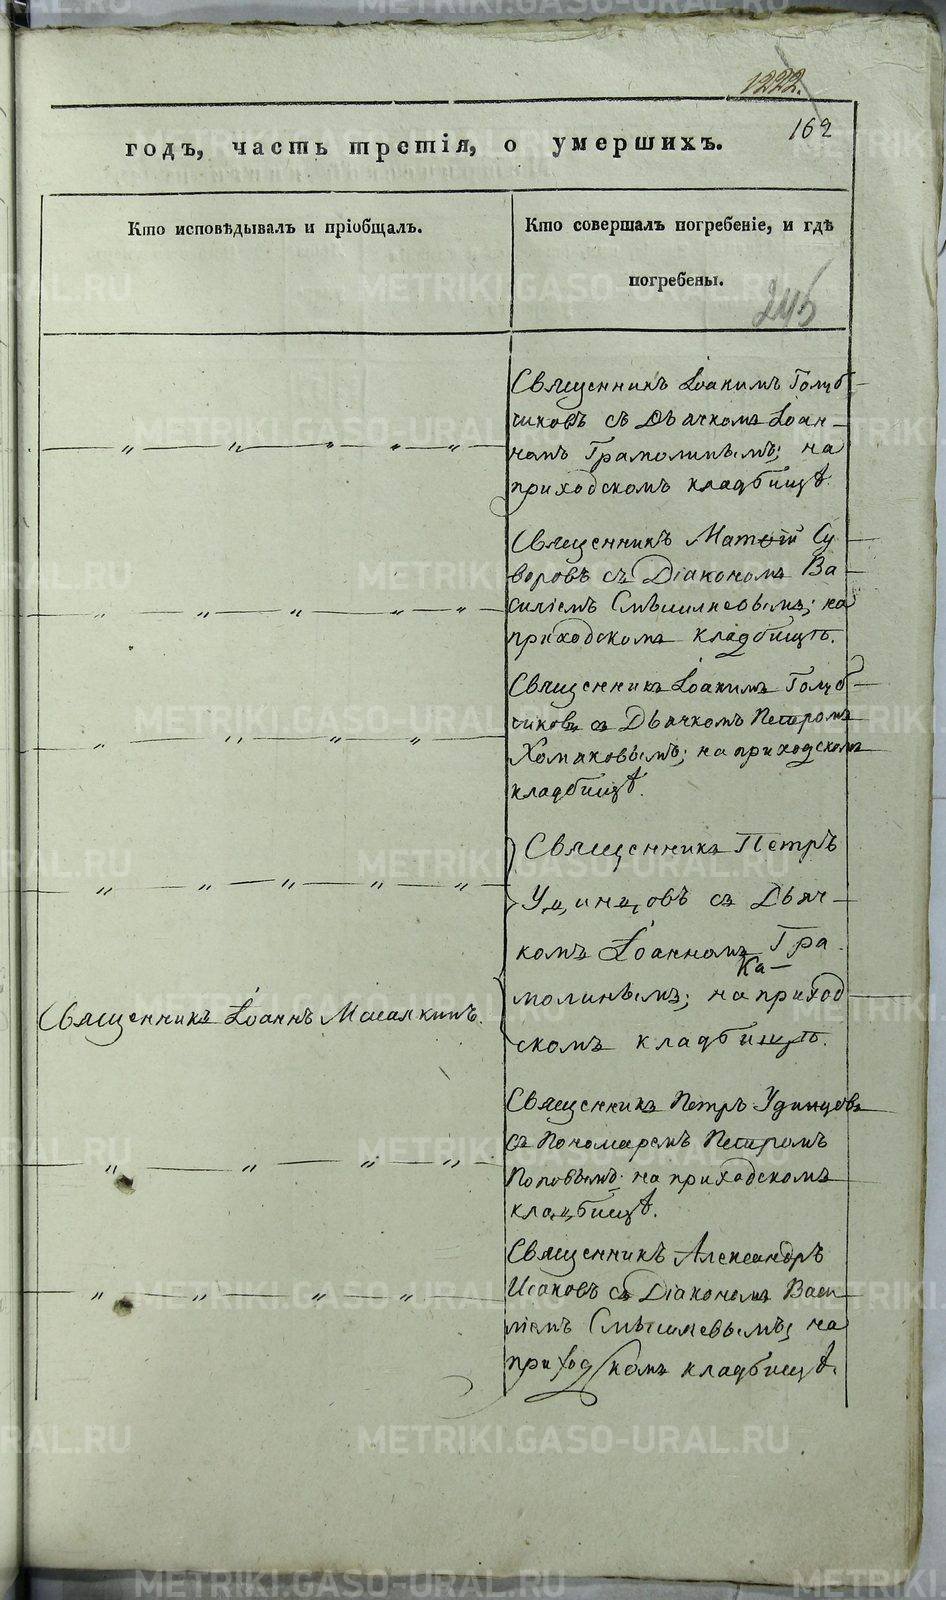 1222.
162
годъ, часть третія, о умершихъ.
Кто исповѣдывалъ и пріобщалъ.
Кто совершалъ погребеніе, и гдѣ
погребены.
245
Священникъ Іоакимъ Голуб
чиковъ съ Дьячкомъ Іоан-
номъ Грамолинымъ; на
приходскомъ кладбищѣ.
Священникъ Матѳій Су
воровъ съ Діакономъ Ва
силіемъ на
приходскомъ кладбищѣ.
Священникъ Іоакимъ Голуб
чиковъ съ Дьячкомъ Петромъ
Хомяковымъ; на приходскомъ
кладбищѣ.
Священникъ Петръ
Удинцовъ съ Дьяч-
комъ Іоанномъ Гра
молинымъ; на приход
скомъ кладбищѣ.
Священникъ Іоаннъ
Священникъ Петръ Удинцовъ
съ Пономаремъ Петромъ
Поповымъ; на приходскомъ
кладбищѣ.
Священникъ Александръ
Исаковъ съ Діакономъ Васи
ліемъ на
приходскомъ кладбищѣ.
METRIKI.GASO-URAL.RU